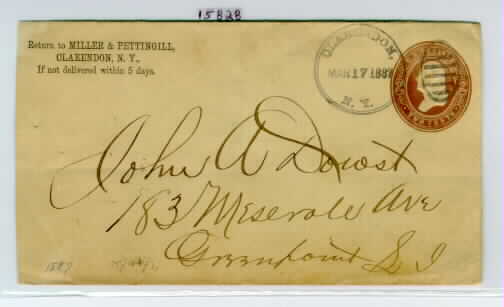 15828
Return to MILLER & PETTINGILL,
CLARENDON, N. Y.,
If not delivered within 5 days.
CLARENDON,
MAR 17 1887
N. Y.
John A Dowst
183 Meserole Ave
Greenpoint L I
1887